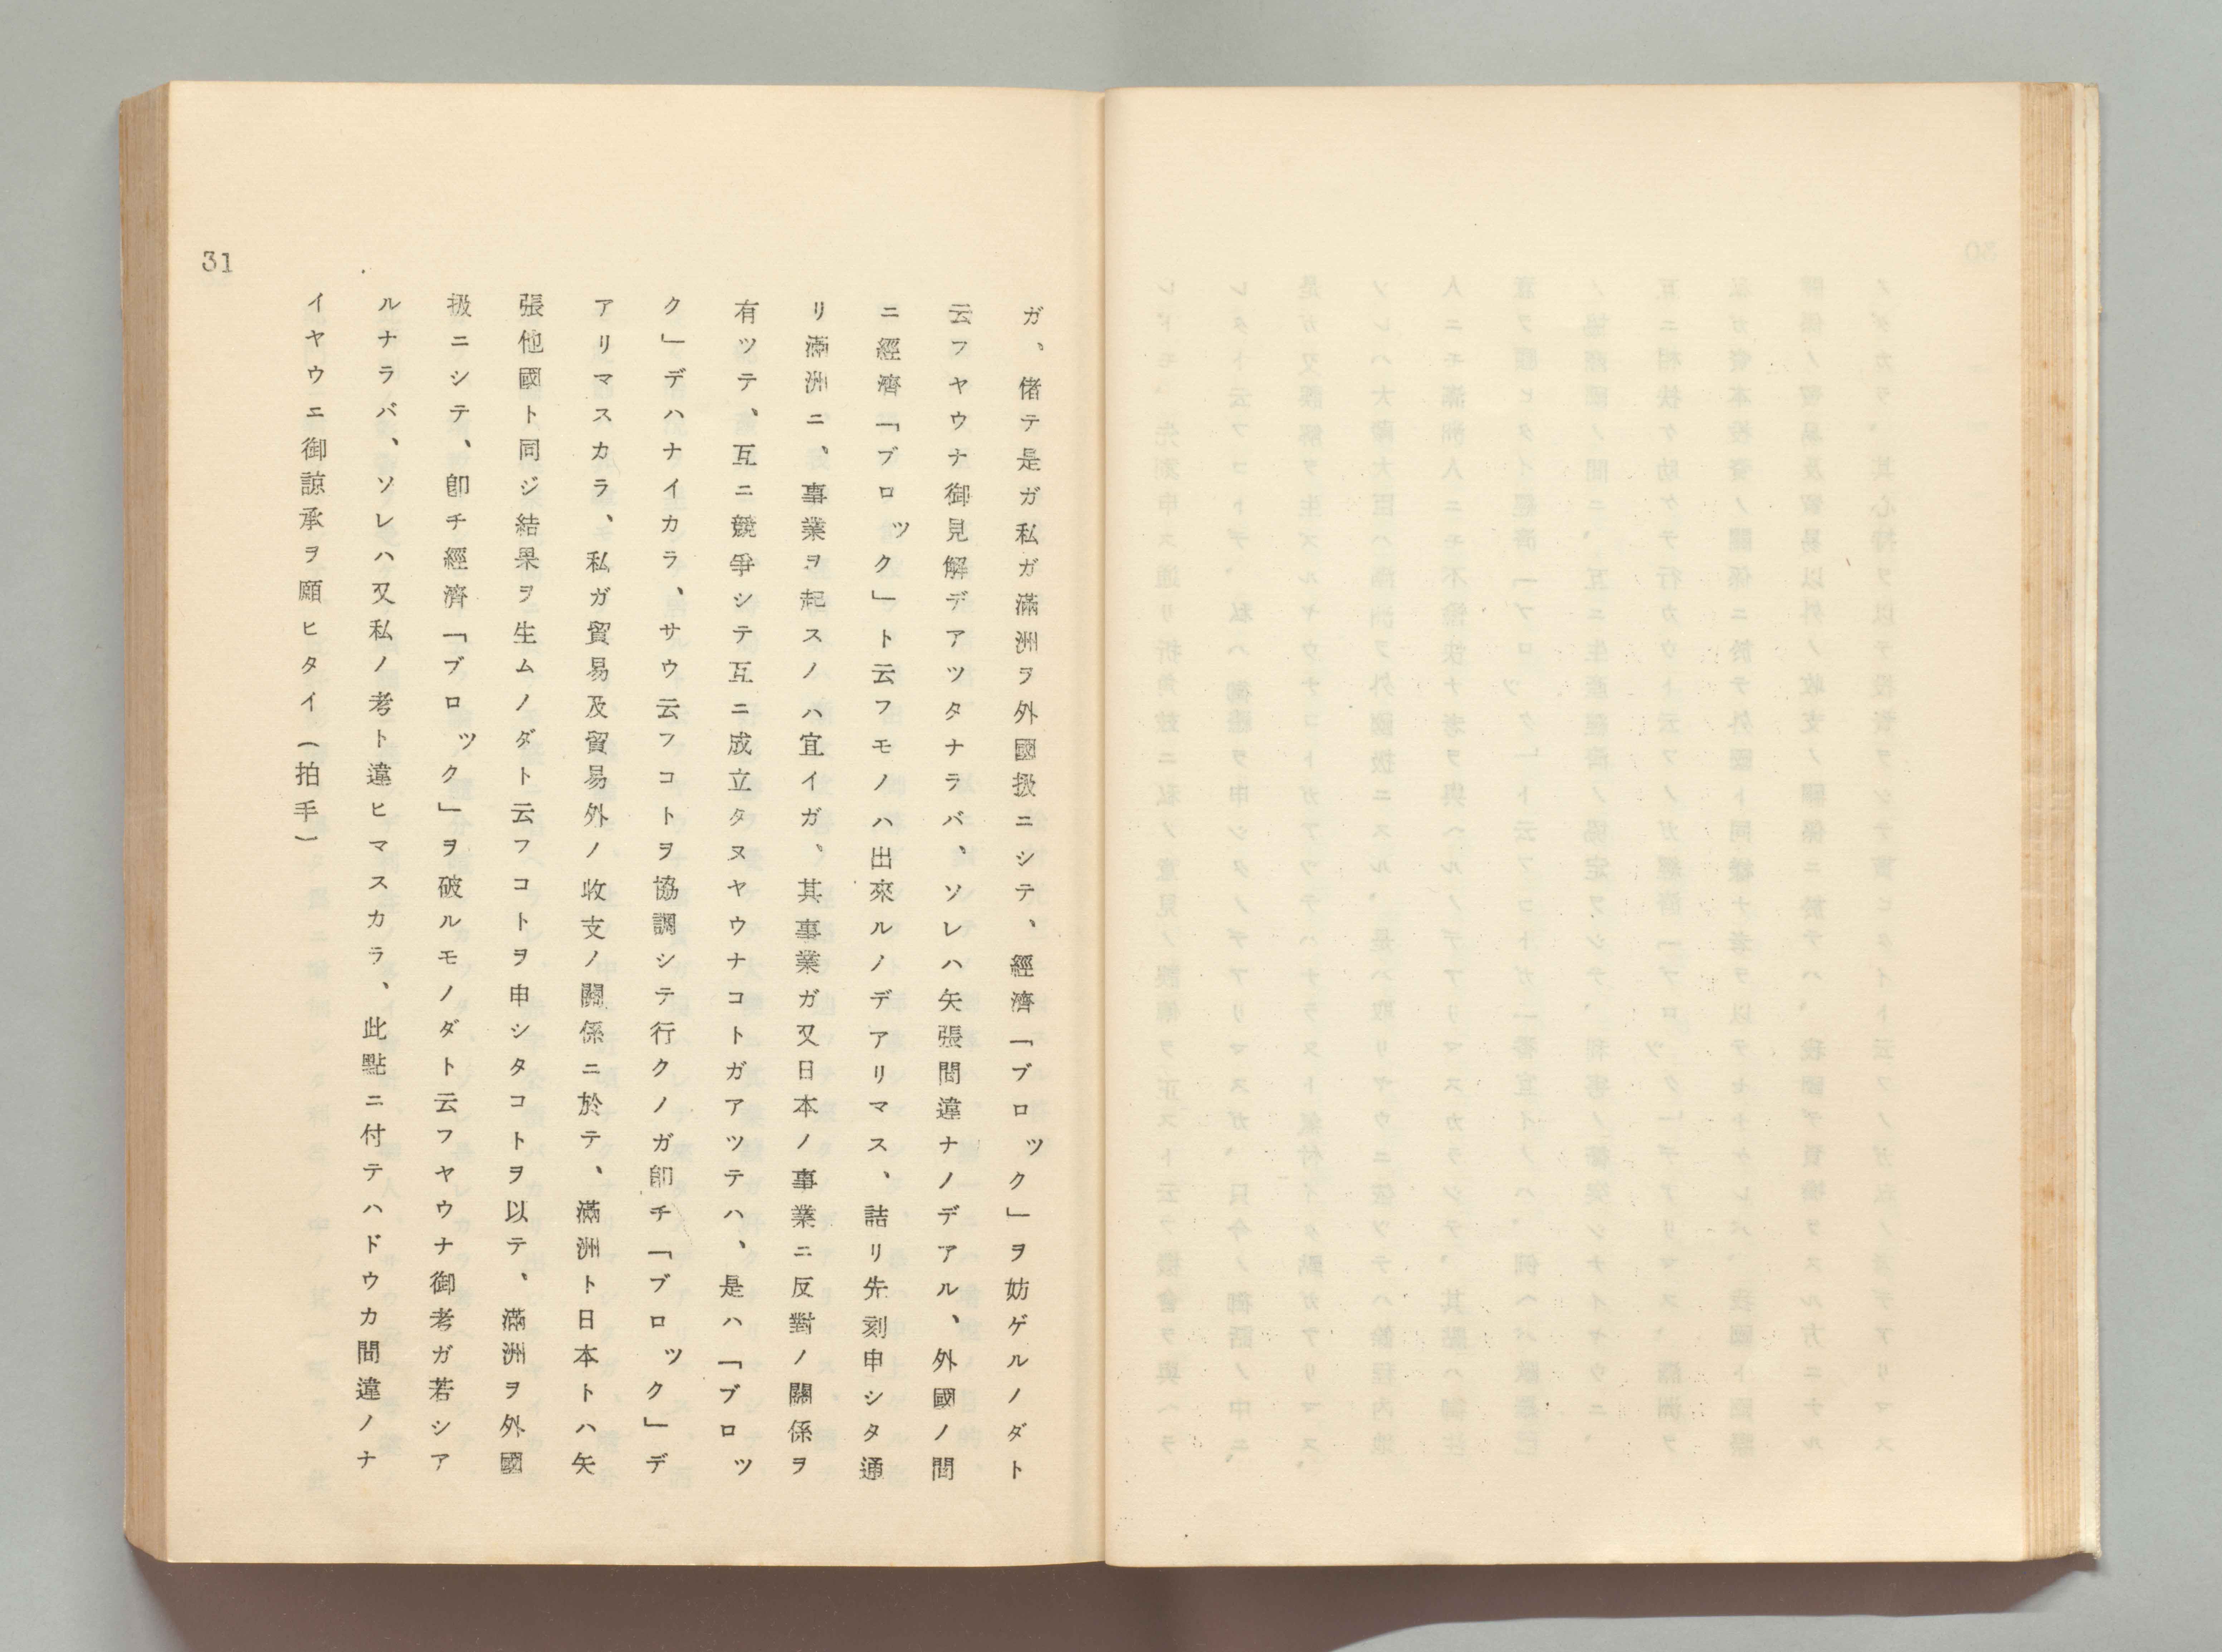 ガ、偖テ是ガ私ガ滿洲ヲ外國扱ニシテ、經濟「ブロック」ヲ妨ゲルノダト
云フヤウナ御見解デアツタナラバ、ソレハ矢張間違ナノデアル、外國ノ間
ニ經濟「ブロック」ト云フモノハ出來ルノデアリマス、詰リ先刻申シタ通
リ滿洲ニ、事業ヲ起スノハ宜イガ、其事業ガ又日本ノ事業ニ反對ノ關係ヲ
有ツテ、互ニ競爭シテ互ニ成立タヌヤウナコトガアツテハ、是ハ「ブロッ
ク」デハナイカラ、サウ云フコトヲ協調シテ行クノガ卽チ「ブロック」デ
アリマスカラ、私ガ貿易及貿易外ノ收支ノ關係ニ於テ、滿洲ト日本トハ矢
張他國ト同ジ結果ヲ生ムノダト云フコトヲ申シタコトヲ以テ、滿洲ヲ外國
扱ニシテ、卽チ經濟「ブロック」ヲ破ルモノダト云フヤウナ御考ガ若シア
ルナラバ、ソレハ又私ノ考ト違ヒマスカラ、此點ニ付テハドウカ間違ノナ
イヤウニ御諒承ヲ願ヒタイ(拍手)
31